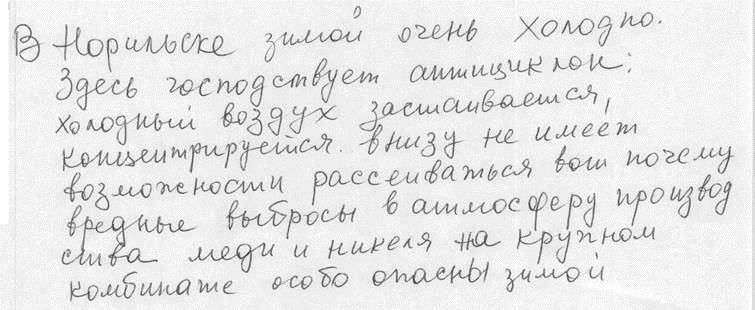 В Норильске зимой очень холодно.
Здесь господствует антициклон:
холодный воздух застаивается,
концентрируется. внизу не имеет
возможности рассеиваться вот почему
вредные выбросы в атмосферу производ
ства меди и никеля на крупном
комбинате особо опасны зимой